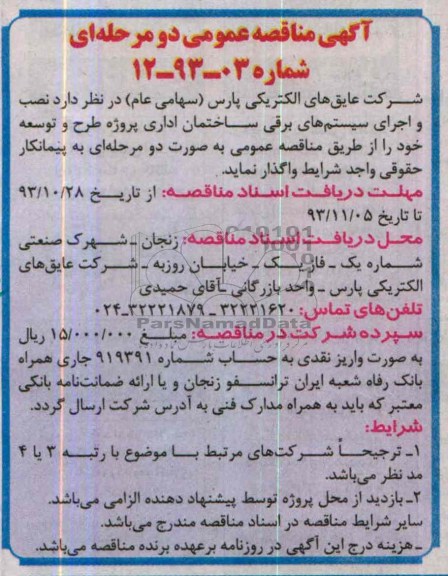 آگهی مناقصه عمومی دو مرحله‌ای
شماره ۰۳ــ۹۳ــ۱۲
شرکت عایق‌های الکتریکی پارس (سهامی عام) در نظر دارد نصب
و اجرای سیستم‌های برقی ساختمان اداری پروژه طرح و توسعه
خود را از طریق مناقصه عمومی به صورت دو مرحله‌ای به پیمانکار
حقوقی واجد شرایط واگذار نماید.
مهلت دریافت اسناد مناقصه: از تاریخ ۹۳/۱۰/۲۸
تا تاریخ ۹۳/۱۱/۰۵
محل دریافت اسناد مناقصه: زنجان ـ شهرک صنعتی
شماره یک ـ فاز یک ـ خیابان روزبه ـ شرکت عایق‌های
الکتریکی پارس ـ واحد بازرگانی ـ آقای حمیدی
تلفن‌های تماس: ۳۲۲۲۱۶۲۰ ـ ۳۲۲۲۱۸۷۹ــ۰۲۴
ParsNamadData
سپرده شرکت در مناقصه: مبلغ ۱۵/۰۰۰/۰۰۰ ریال
به صورت واریز نقدی به حساب شماره ۹۱۹۳۹۱ جاری همراه
بانک رفاه شعبه ایران ترانسفو زنجان و یا ارائه ضمانت‌نامه بانکی
معتبر که باید به همراه مدارک فنی به آدرس شرکت ارسال گردد.
شرایط:
۱ـ ترجیحاً شرکت‌های مرتبط با موضوع با رتبه ۳ یا ۴
مد نظر می‌باشد.
۲ـ بازدید از محل پروژه توسط پیشنهاد دهنده الزامی می‌باشد.
سایر شرایط مناقصه در اسناد مناقصه مندرج می‌باشد.
ـ هزینه درج این آگهی در روزنامه برعهده برنده مناقصه می‌باشد.